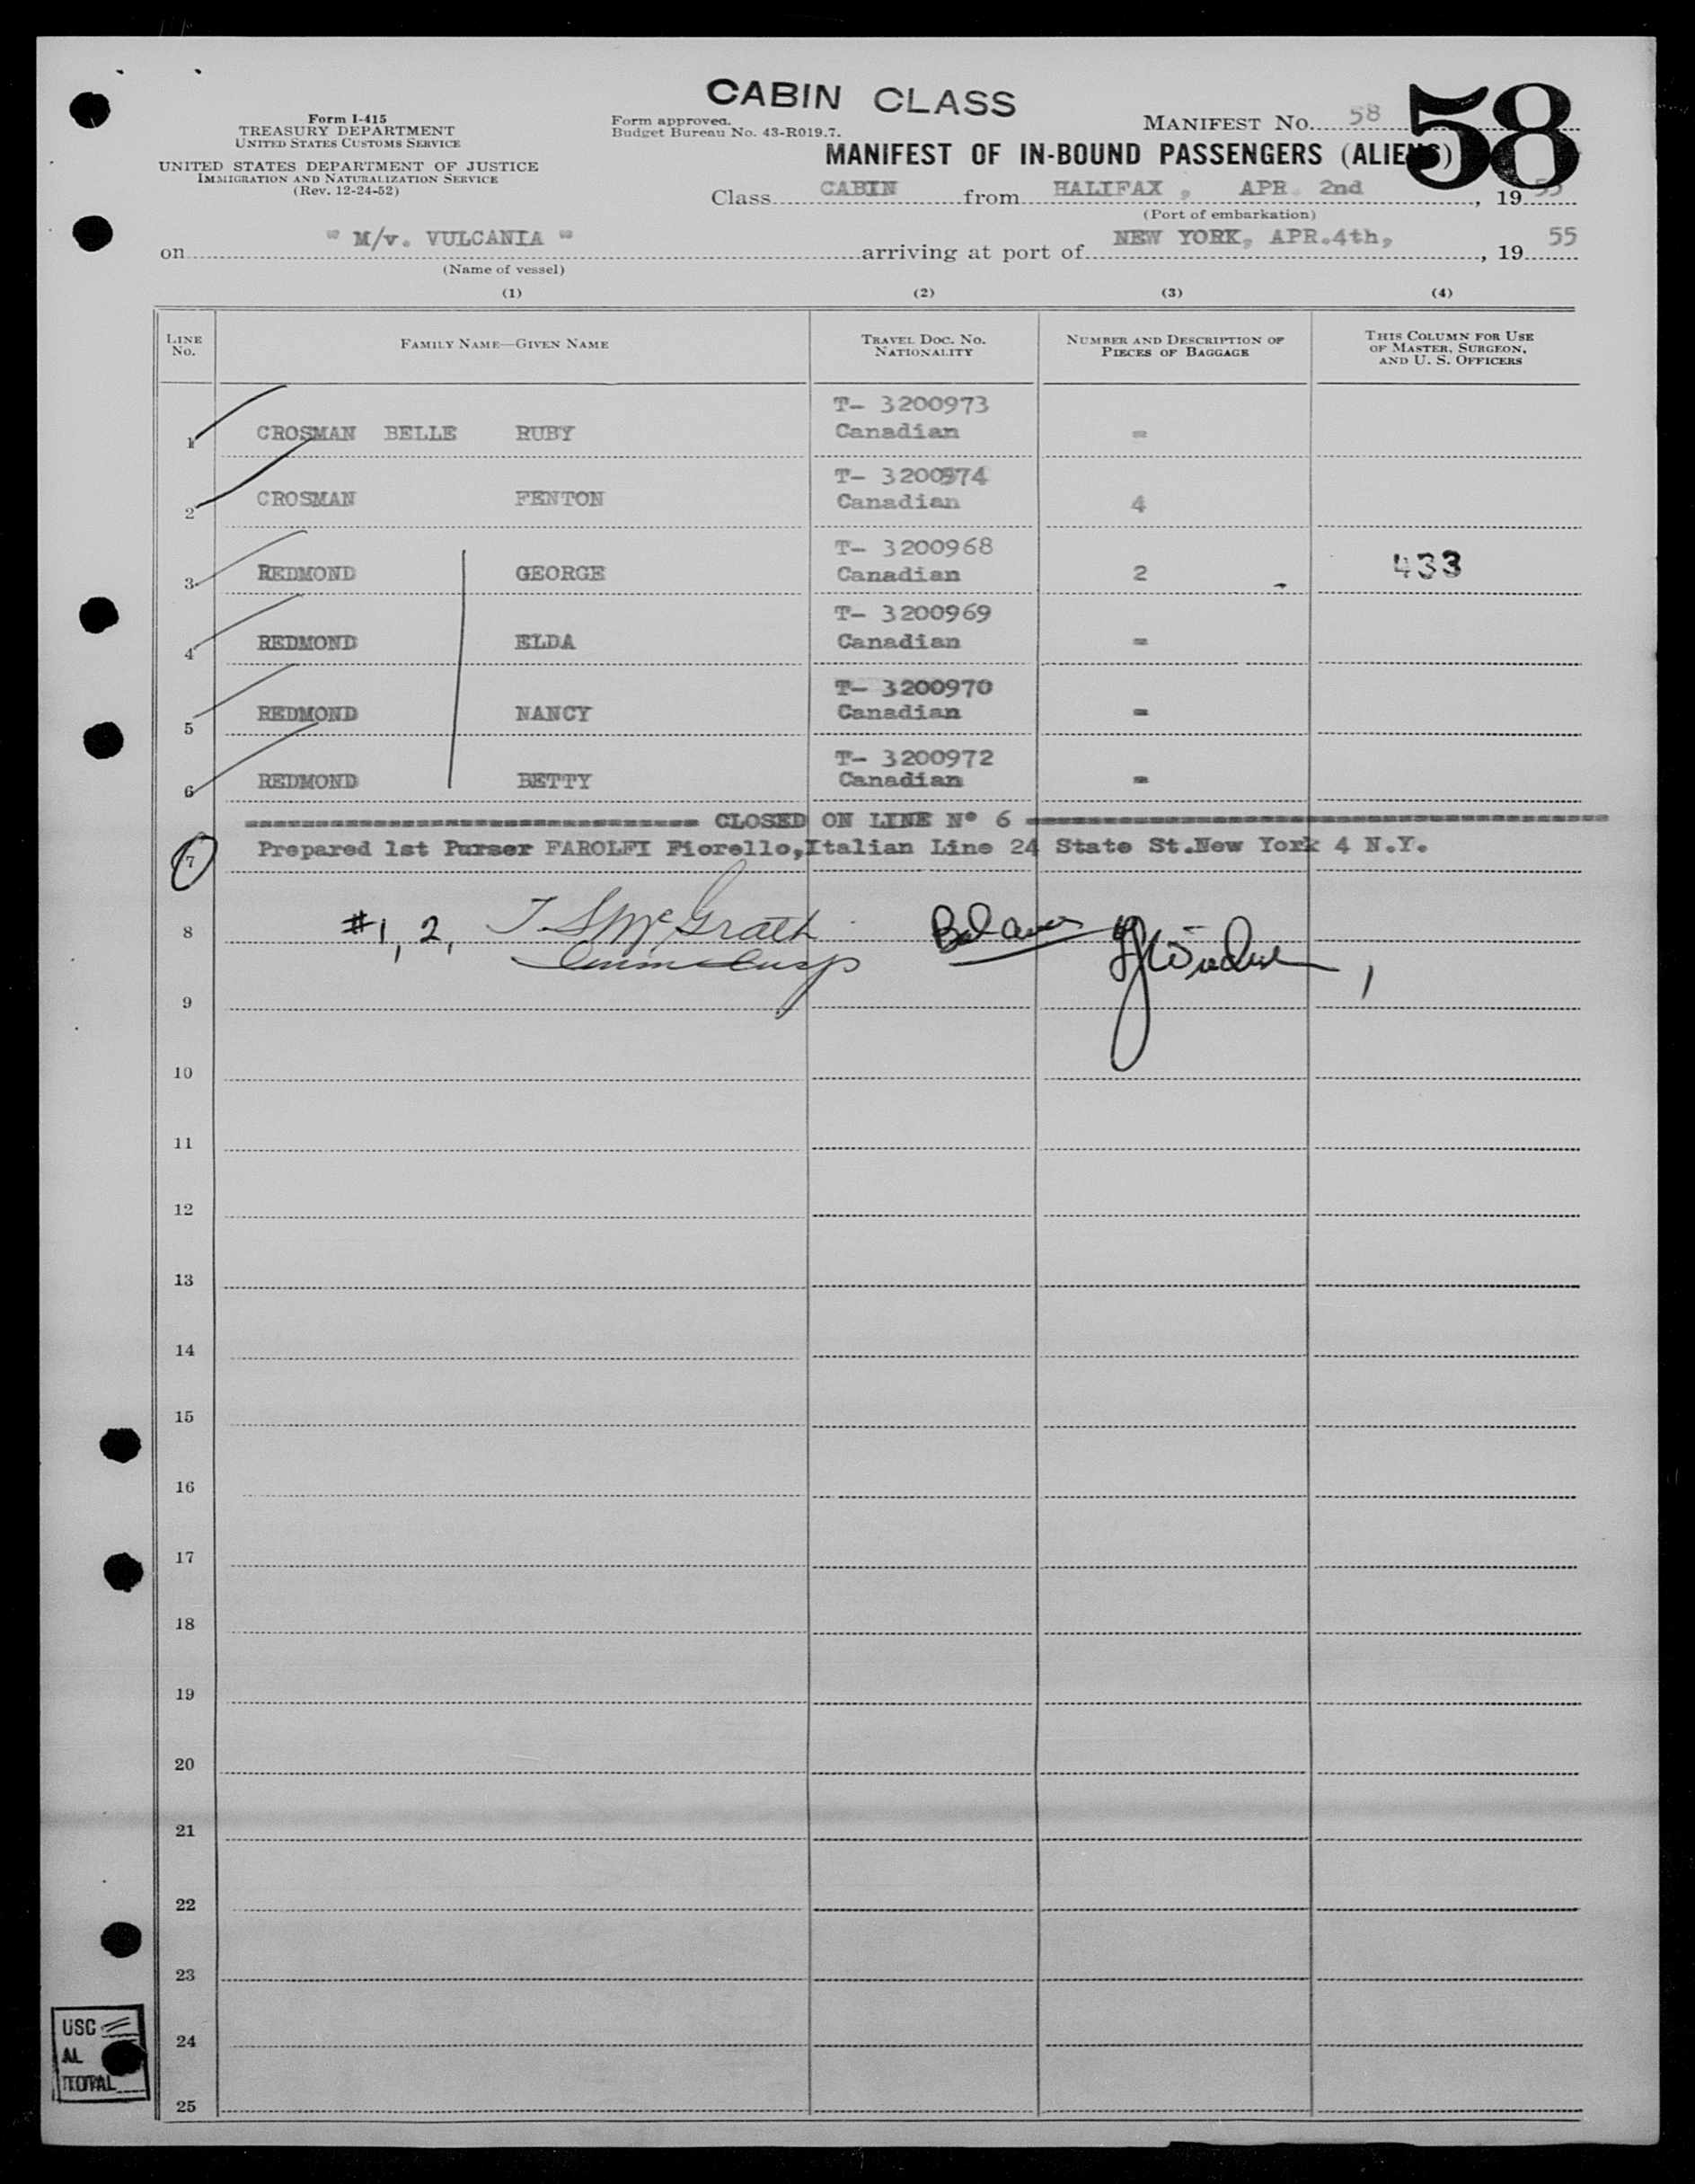 CABIN CLASS
58
Form I-415
TREASURY DEPARTMENT
UNITED STATES CUSTOMS SERVICE
UNITED STATES DEPARTMENT OF JUSTICE
IMMIGRATION AND NATURALIZATION SERVICE
(Rev. 12-24-52)
Form approved.
Budget Bureau No. 43-R019.7.
MANIFEST NO. 58
MANIFEST OF IN-BOUND PASSENGERS (ALIENS)
Class CABIN from HALIFAX , APR. 2nd , 19 55
(Port of embarkation)
on " M/v. VULCANIA " arriving at port of NEW YORK, APR.4th, , 19 55
(Name of vessel)
(1) (2) (3) (4)
LINE NO. FAMILY NAME—GIVEN NAME TRAVEL DOC. NO. NATIONALITY NUMBER AND DESCRIPTION OF PIECES OF BAGGAGE THIS COLUMN FOR USE OF MASTER, SURGEON, AND U. S. OFFICERS
T- 3200973
1 CROSMAN BELLE RUBY Canadian -
T- 3200974
2 CROSMAN FENTON Canadian 4
T- 3200968
3 REDMOND GEORGE Canadian 2 433
T- 3200969
4 REDMOND ELDA Canadian -
T- 3200970
5 REDMOND NANCY Canadian -
T- 3200972
6 REDMOND BETTY Canadian -
CLOSED ON LINE Nº 6
7 Prepared 1st Purser FAROLFI Fiorello,Italian Line 24 State St.New York 4 N.Y.
8 #1, 2, McGrath
9
10
11
12
13
14
15
16
17
18
19
20
21
22
23
24
25
USC
AL
TOTAL